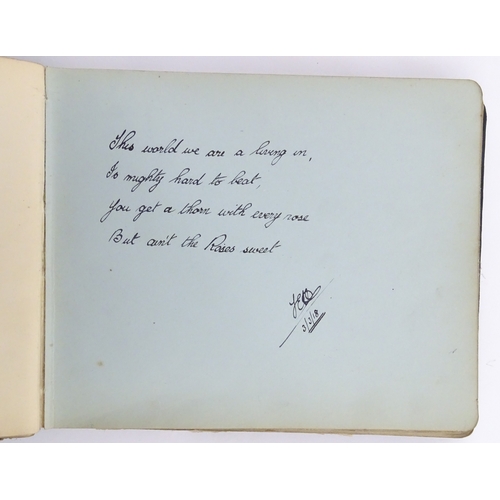 This world we are a living in,
Is mighty hard to beat,
You get a thorn with every rose
But ain't the Roses sweet
3/3/18